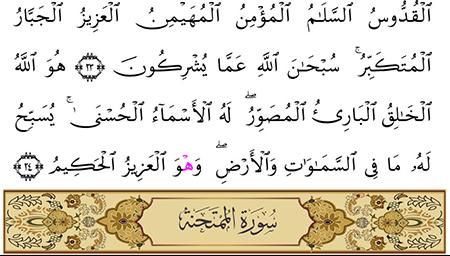 ٱلْقُدُّوسُ ٱلسَّلَـٰمُ ٱلْمُؤْمِنُ ٱلْمُهَيْمِنُ ٱلْعَزِيزُ ٱلْجَبَّارُ
ٱلْمُتَكَبِّرُ ۚ سُبْحَـٰنَ ٱللَّهِ عَمَّا يُشْرِكُونَ ﴿٢٣﴾ هُوَ ٱللَّهُ
ٱلْخَـٰلِقُ ٱلْبَارِئُ ٱلْمُصَوِّرُ ۖ لَهُ ٱلْأَسْمَآءُ ٱلْحُسْنَىٰ ۚ يُسَبِّحُ
لَهُۥ مَا فِى ٱلسَّمَـٰوَٰتِ وَٱلْأَرْضِ ۖ وَهُوَ ٱلْعَزِيزُ ٱلْحَكِيمُ ﴿٢٤﴾
سُورَةُ الممتحنة